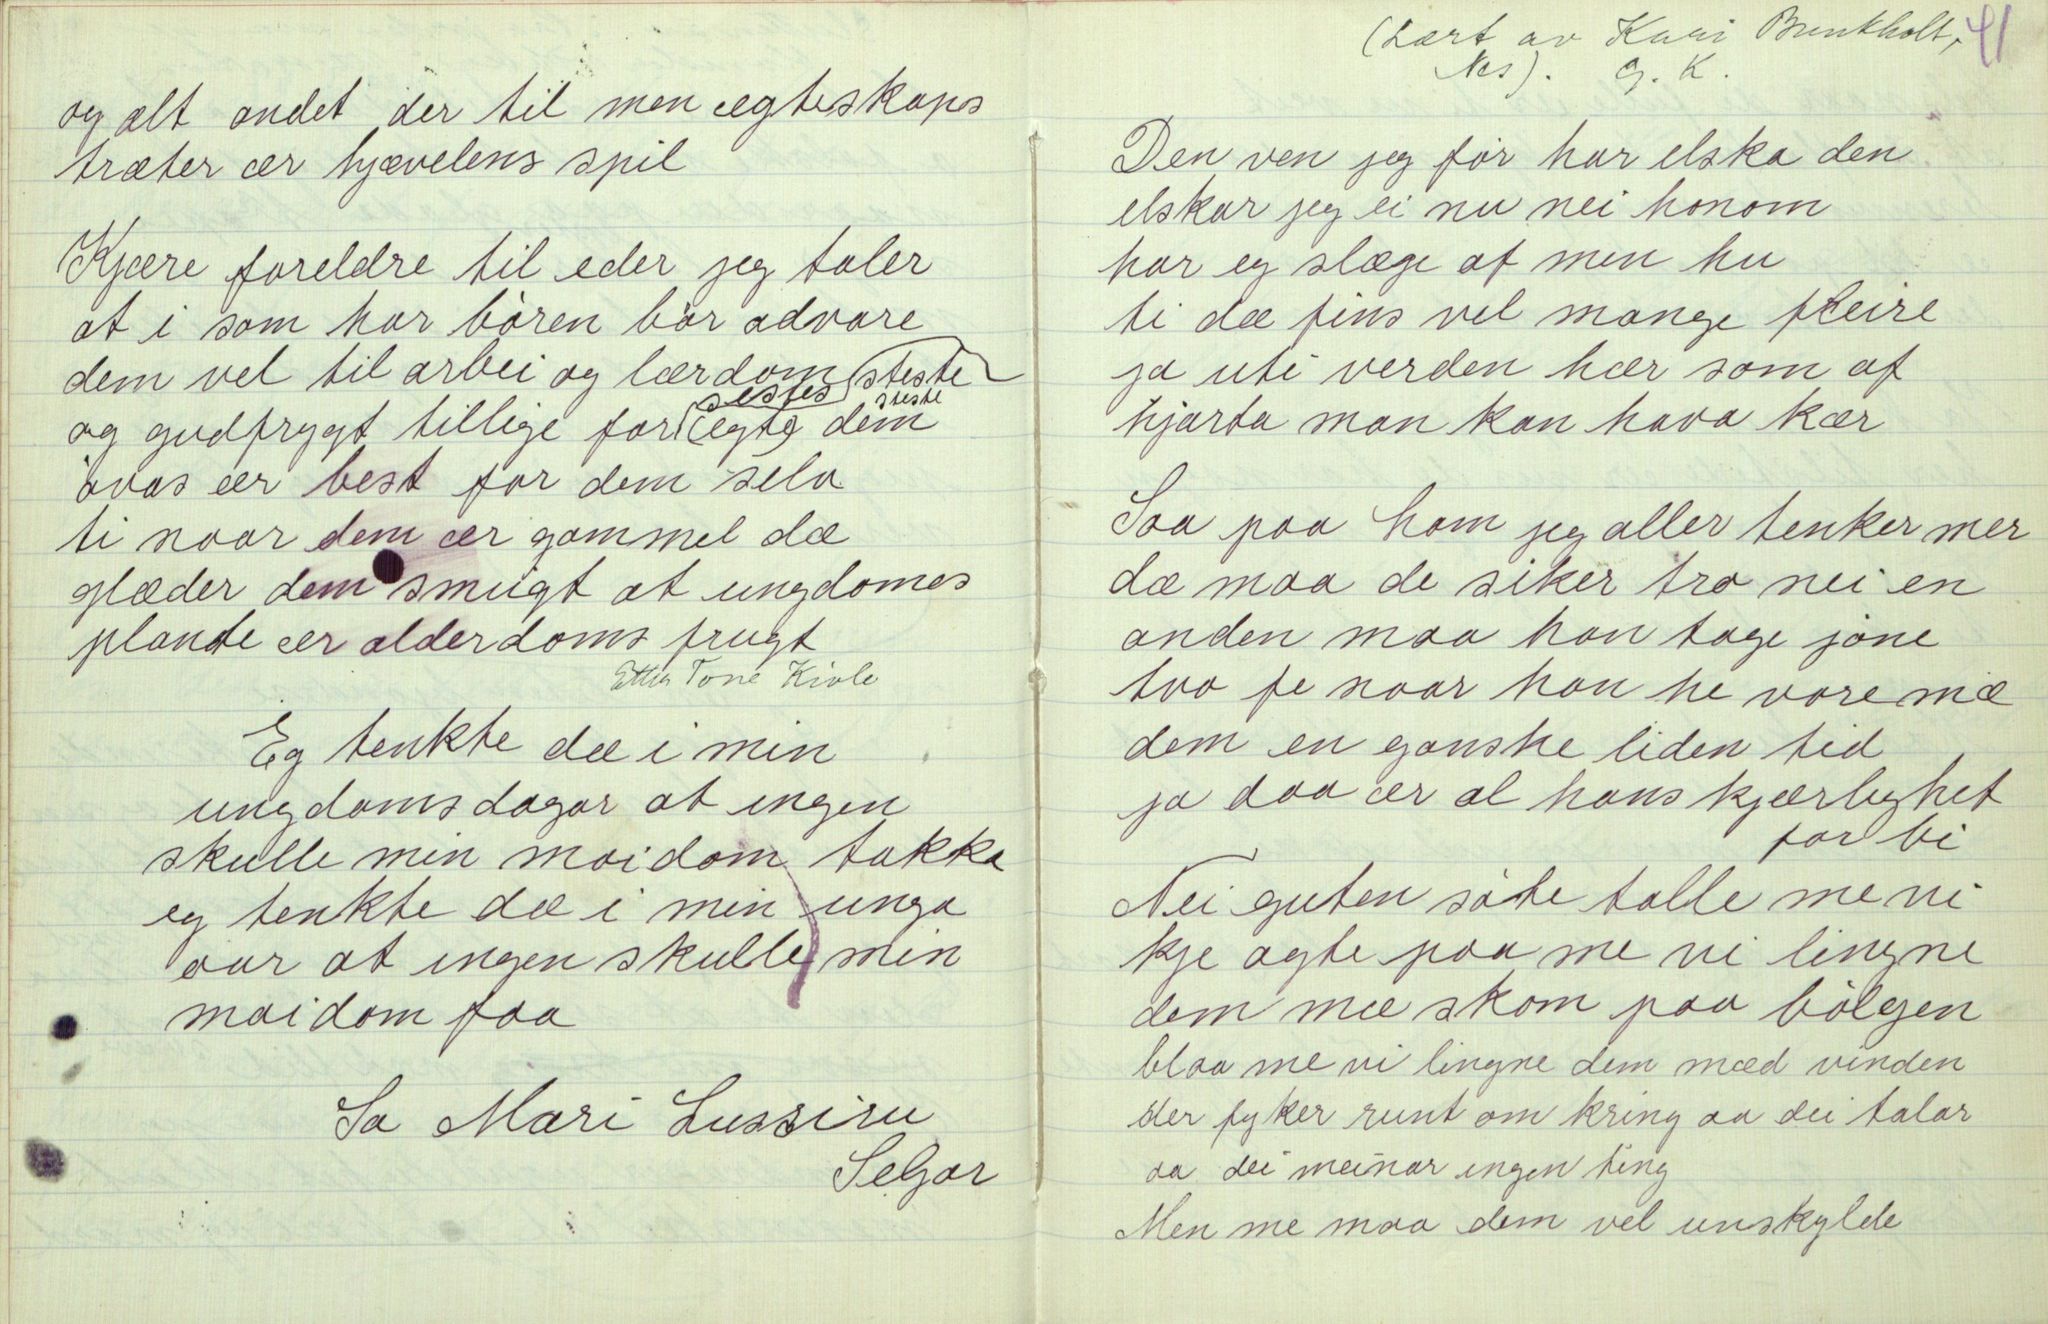 og alt andet der til men ægteskaps
træter ær hjævelens spil
Kjære foreldre til eder jeg taler
at i som har bören bör advare
dem vel til arbei og lærdom steste
sestes steste
og gudfrygt tillige for ægte dem
övas ær best for dem selv
ti naar dem ær gammel dæ
glæder dem smügt at ungdomes
plante ær alderdoms frugt
Etter Tone Kivle
Eg tenkte dæ i min
ungdomsdagar at ingen
skulle min moidom takka
eg tenkte dæ i min unga
aar at ingen skulle min
moidom faa
Sa Mari Lussiru
Selgar
(Lært av Kari Bunkholt, 41
Nes). G. K.
Den ven jeg för har elska den
elskar jeg ei nu nei honom
har eg slæge af men hu
ti dæ fins vel mange fleire
ja uti verden hær som af
hjarta man kan hava kær
Saa paa ham jeg aller tenker mer
dæ maa de siker tro nei en
anden maa han tage jöne
tvo fe naar han he vore mæ
dem en ganske liden tid
ja daa ær al hans kjærlighet
for bi
Nei guten söte talle me vi
kje agte paa me vi lingne
dem mæ skom paa bölgen
blaa me vi lingne dem mæd vinden
der fyker runt om kring aa dei talar
aa dei meinar ingen ting
Men me maa dem vel unskylde